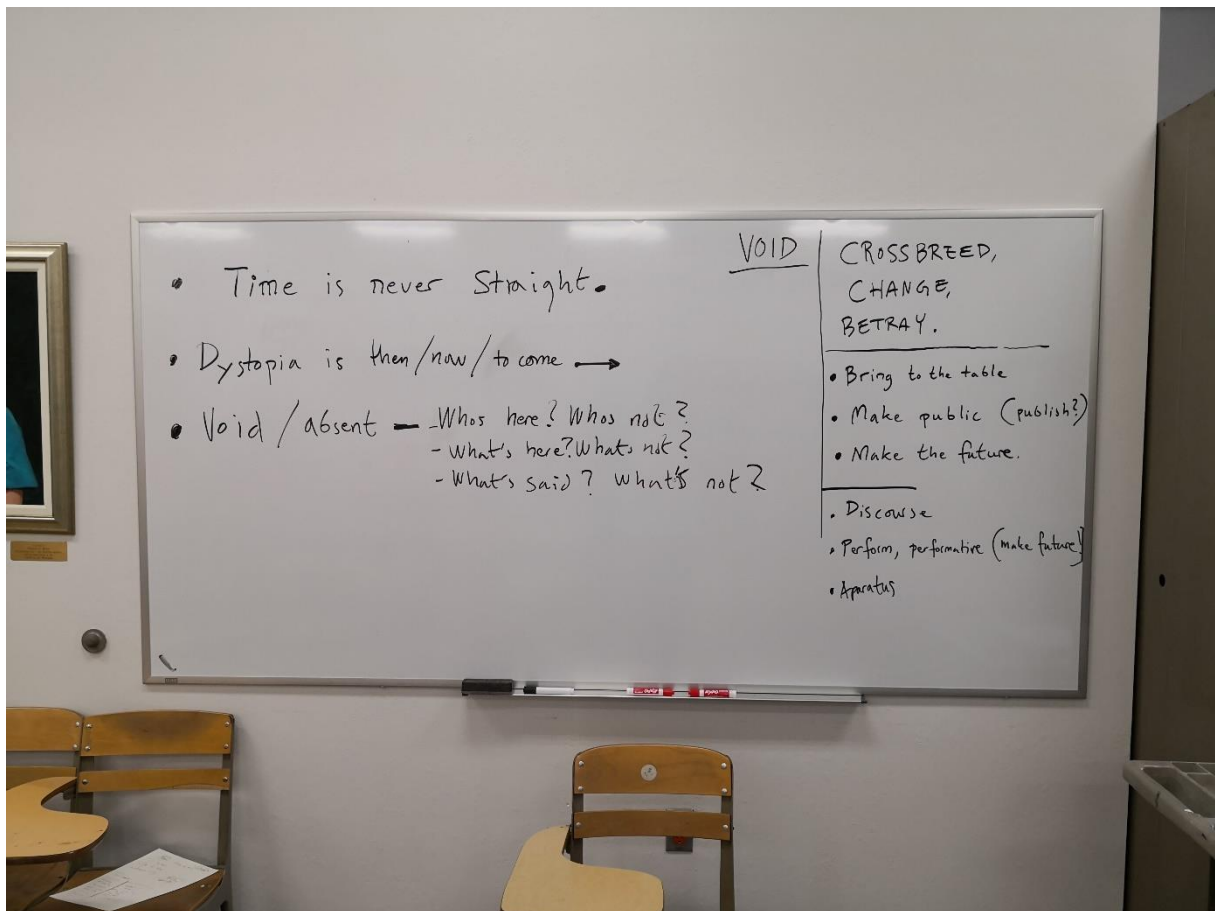 • Time is never Straight.
• Dystopia is then/now/to come →
• Void / absent — - Whos here? Whos not?
- What's here? Whats not?
- What's said? What's not?
VOID
CROSSBREED,
CHANGE,
BETRAY.
• Bring to the table
• Make public (publish?)
• Make the future.
• Discourse
• Perform, performative (make future)
• Aparatus